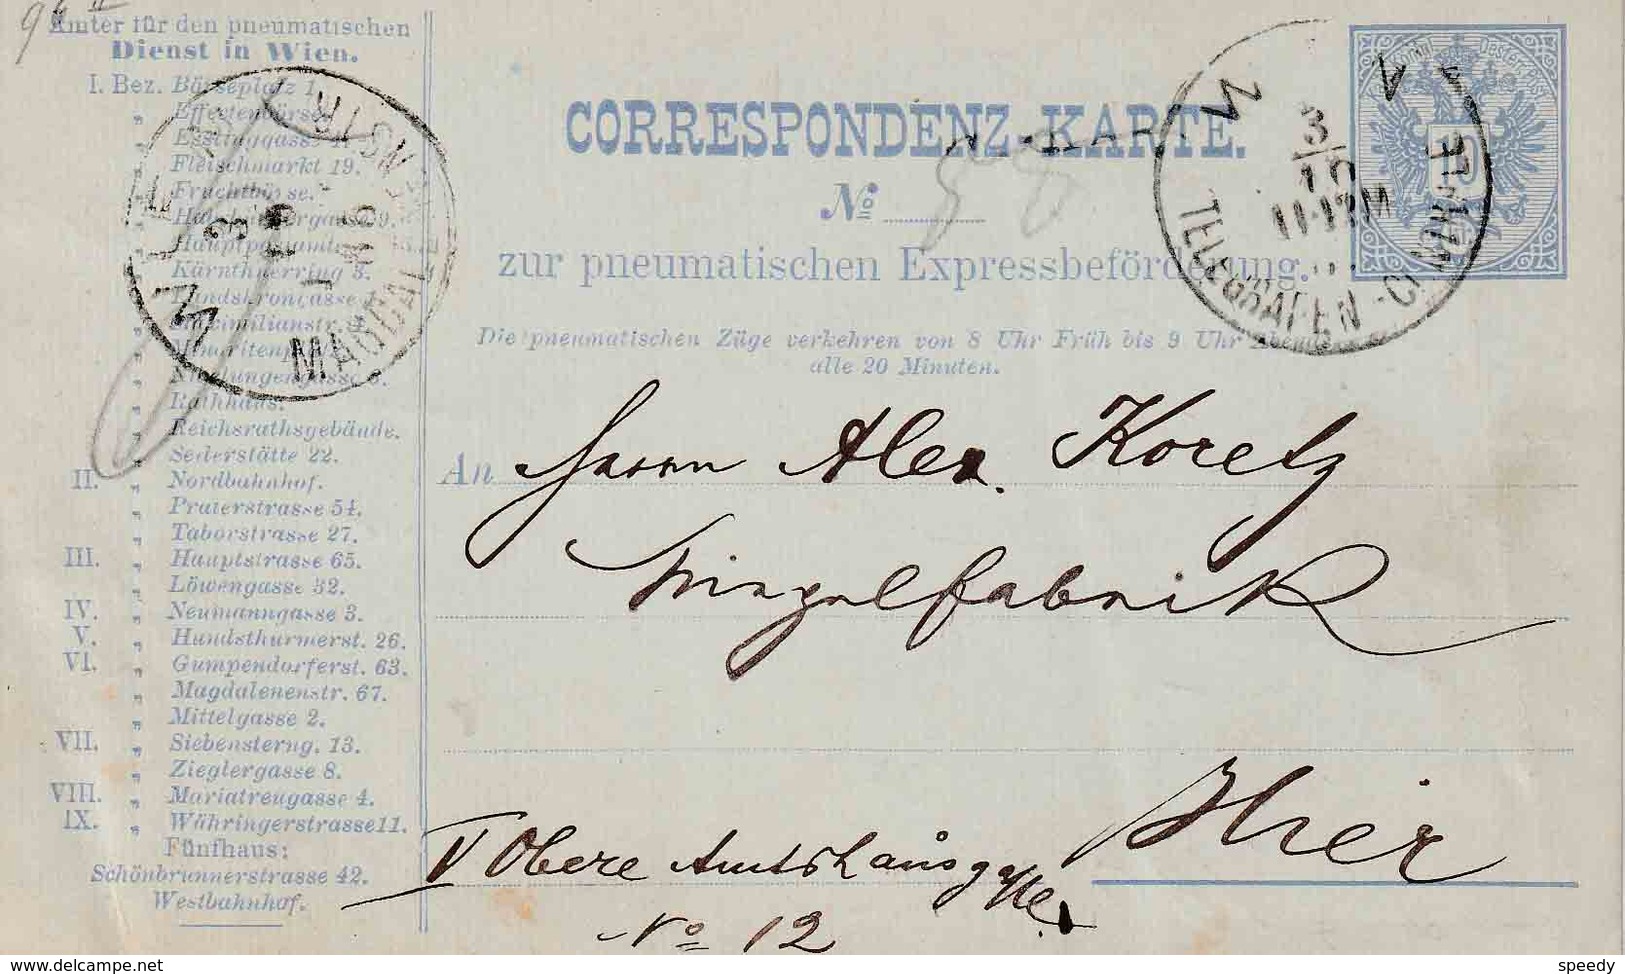 Ämter für den pneumatischen
Dienst in Wien.
I. Bez. Börseplatz 1.
" Effectenbörse
" Esslinggasse
" Fleischmarkt 19.
" Fruchtbörse.
" Hauptpostamt
" Kärnthnerring 3.
" Landskrongasse
" Maximilianstr.
" Minoriten
" Nibelungengasse
" Rathhaus.
" Reichsrathsgebäude.
" Seilerstätte 22.
II. " Nordbahnhof.
" Praterstrasse 54.
" Taborstrasse 27.
III. " Hauptstrasse 65.
" Löwengasse 32.
IV. " Neumanngasse 3.
V. " Hundsthurmerst. 26.
VI. " Gumpendorferst. 63.
" Magdalenenstr. 67.
" Mittelgasse 2.
VII. " Siebensterng. 13.
" Zieglergasse 8.
VIII. " Mariatreugasse 4.
IX. " Währingerstrasse 11.
Fünfhaus:
Schönbrunnerstrasse 42.
Westbahnhof.
CORRESPONDENZ-KARTE.
No
zur pneumatischen Expressbeförderung.
Die pneumatischen Züge verkehren von 8 Uhr Früh bis 9 Uhr Abends
alle 20 Minuten.
An Herrn Alex. Koretz
Hier
V Obere Amtshausgasse
No 12
WIEN
3/10
TELEGRAFEN-CENTRALE
WIEN
MAGDALENENSTR
speedy
www.delcampe.net